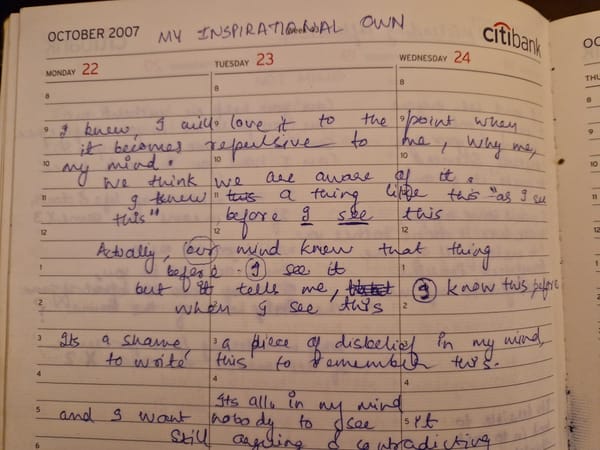 OCTOBER 2007 MY INSPIRATIONAL OWN citibank
MONDAY 22 TUESDAY 23 WEDNESDAY 24
8 8 8
9 I knew, I will 9 love it to the 9 point when
it becomes repulsive to me, why me,
10 my mind. 10 10
We think we are aware of it.
11 I knew 11 this a thing like this "as I see
this" before I see this
12 12 12
Actually, our mind knew that thing
1 before I see it 1
but it tells me, I know this before
2 when I see this 2
3 Its a shame, 3 a piece of disbelief in my mind,
to write this to remember this.
4 4 4
Its all in my mind
5 and I want nobody to see 5 it
Still arguing & contradicting
6
OC
THU
8
9
10
11
12
1
2
3
4
5